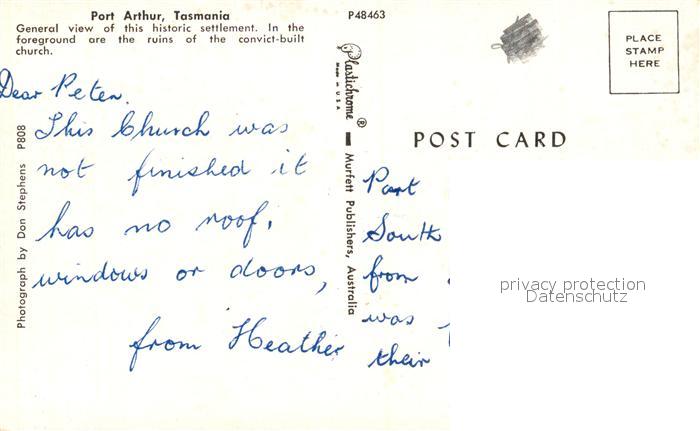 Port Arthur, Tasmania
General view of this historic settlement. In the
foreground are the ruins of the convict-built
church.
Dear Peter.
This Church was
not finished it
has no roof,
windows or doors,
from Heather
Photograph by Don Stephens P808
P48463
Plastichrome ®
Made in U.S.A.
Murfett Publishers, Australia
PLACE
STAMP
HERE
POST CARD
Port
South
from
was
their
privacy protection
Datenschutz